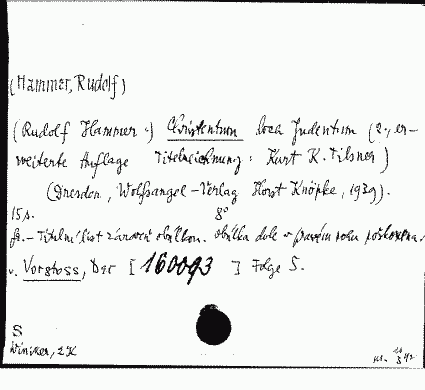 (Hammer, Rudolf)
(Rudolf Hammer:) Christentum Judentum (2., er-
weiterte Auflage Titelzeichnung: Kurt K. Tilsner)
(Dresden, Wolfsangel-Verlag Horst Knöpke, 1939).
15 s. 8°
Titelní list zároveň obálkou. Obálka dole v pravém rohu poškozena.
v. Vorstoss, Der [160093] Folge 5.
S